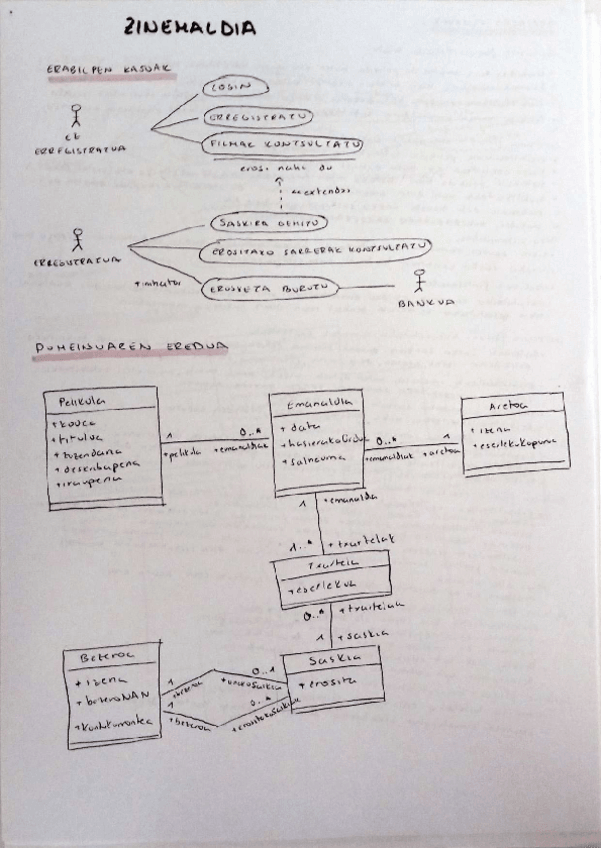 ZINEMALDIA
ERABILPEN KASUAK
LOGIN
ERREGISTRATU
FILMAK KONTSULTATU
EZ
ERREGISTRATUA
erosi nahi du
<<extend>>
SASKIRA GEHITU
EROSITAKO SARRERAK KONTSULTATU
ERREGISTRATUA
EROSKETA BURUTU
BANKUA
DOMEINUAREN EREDUA
Pelikula
+ kodea
+ titulua
+ zuzendaria
+ deskribapena
+ iraupena
1
+ pelikula
0..*
+ emanaldiak
Emanaldia
+ data
+ hasierakoOrdua
+ salneurria
0..*
+ emanaldiak
1
+ aretoa
Aretoa
+ izena
+ eserlekuKopurua
1
+ emanaldia
1..*
+ txartelak
Txartela
+ eserlekua
0..*
+ txartelak
1
+ saskia
Saskia
+ erosita
Bezeroa
+ izena
+ bezeroNAN
+ kontuKorrontea
1
+ bezeroa
0..1
+ unekoSaskia
1
+ bezeroa
0..*
+ erositakoSaskiak